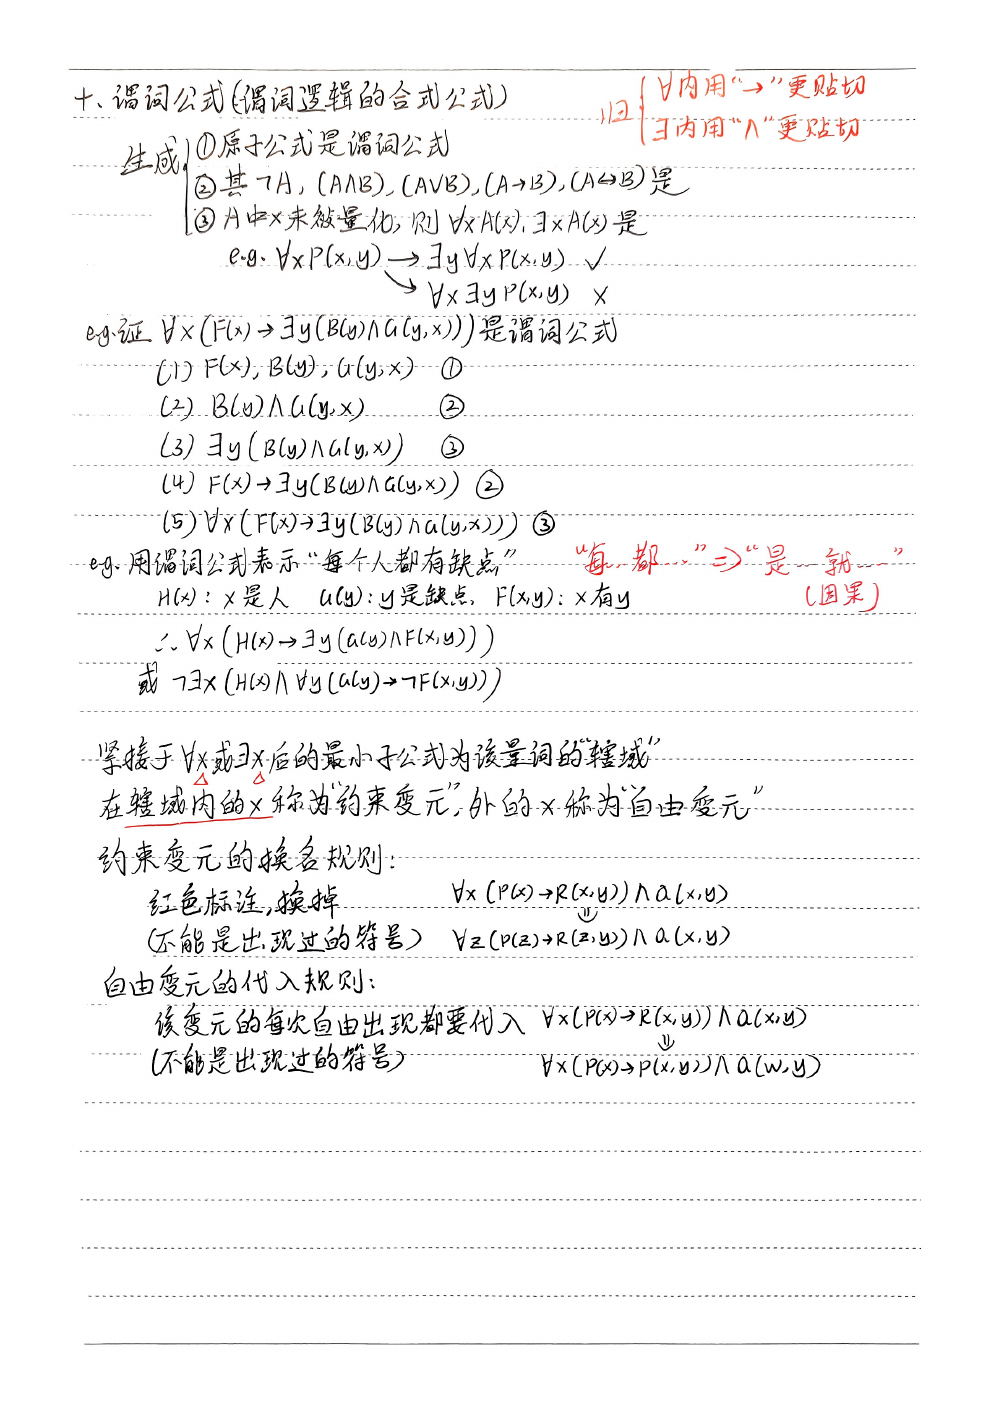 十、谓词公式(谓词逻辑的合式公式)
归{ ∀内用“→”更贴切
∃内用“∧”更贴切
生成{ ①原子公式是谓词公式
②其¬A, (A∧B), (A∨B), (A→B), (A↔B)是
③A中x未被量化, 则∀xA(x), ∃xA(x)是
e.g. ∀xP(x,y) → ∃y∀xP(x,y) ✓
↘ ∀x∃yP(x,y) ×
e.g.证 ∀x(F(x)→∃y(B(y)∧G(y,x)))是谓词公式
(1) F(x), B(y), G(y,x) ①
(2) B(y)∧G(y,x) ②
(3) ∃y(B(y)∧G(y,x)) ③
(4) F(x)→∃y(B(y)∧G(y,x)) ②
(5) ∀x(F(x)→∃y(B(y)∧G(y,x))) ③
e.g. 用谓词公式表示“每个人都有缺点”
“每…都…”⇒“是…就…”
(因果)
H(x): x是人 G(y): y是缺点, F(x,y): x有y
∴ ∀x(H(x)→∃y(G(y)∧F(x,y)))
或 ¬∃x(H(x)∧∀y(G(y)→¬F(x,y)))
紧接于∀x或∃x后的最小子公式为该量词的“辖域”
在辖域内的x称为“约束变元”,外的x称为“自由变元”
约束变元的换名规则:
红色标注,换掉 ∀x(P(x)→R(x,y))∧Q(x,y)
⇓
(不能是出现过的符号) ∀z(P(z)→R(z,y))∧Q(x,y)
自由变元的代入规则:
该变元的每次自由出现都要代入 ∀x(P(x)→R(x,y))∧Q(x,y)
⇓
(不能是出现过的符号) ∀x(P(x)→P(x,y))∧Q(w,y)